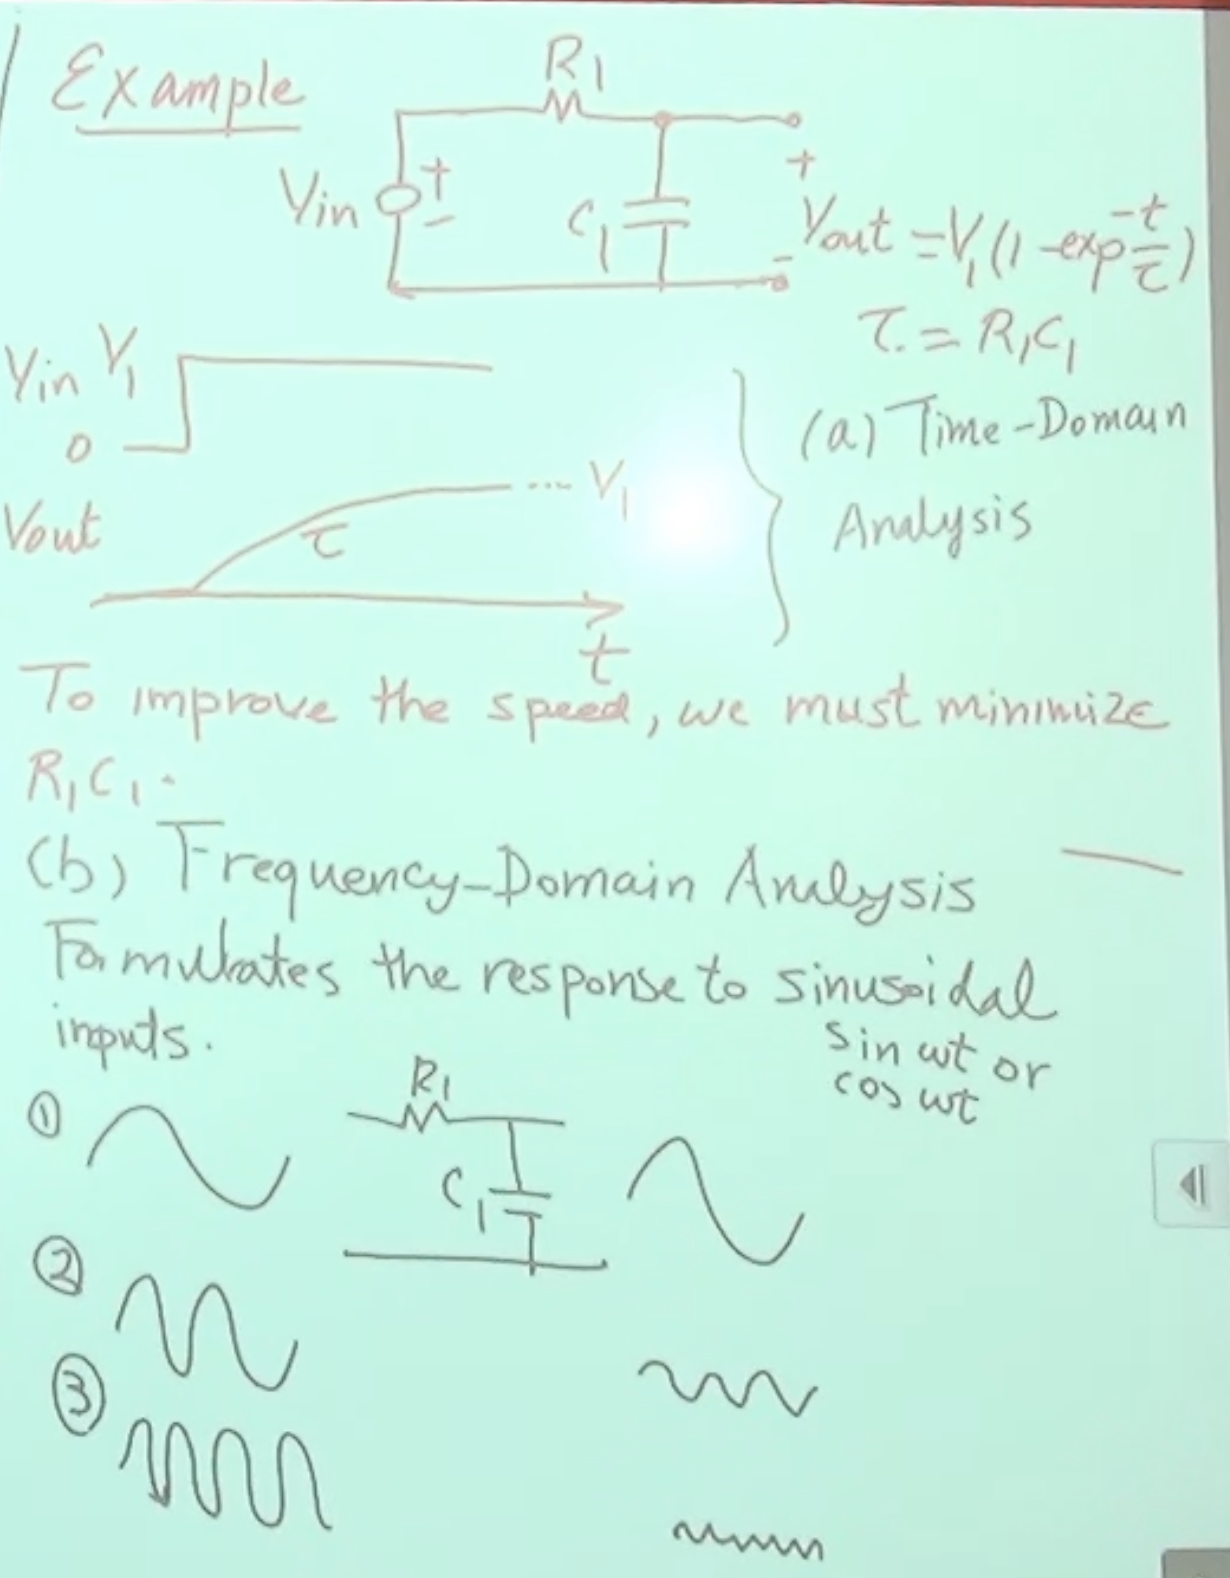 Example
R1
+
Vin
-
C1
+
Vout = V1 (1 - exp -t/τ)
-
τ = R1C1
Vin V1
0
(a) Time-Domain
Analysis
... V1
Vout
τ
t
To improve the speed, we must minimize
R1C1.
(b) Frequency-Domain Analysis
Formulates the response to sinusoidal
inputs.
sin ωt or
cos ωt
①
R1
C1
②
③